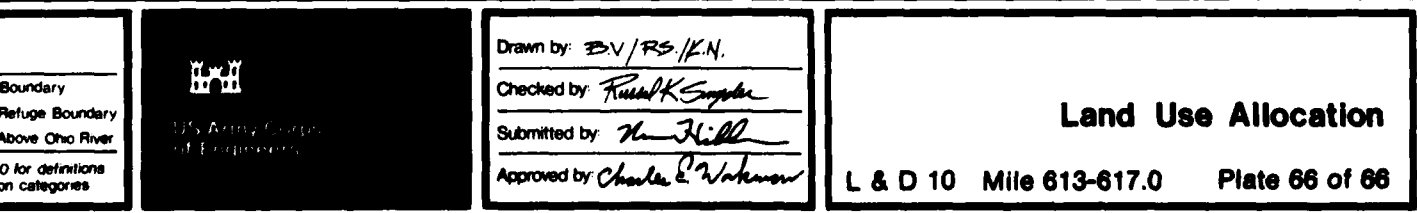 Boundary
Refuge Boundary
Above Ohio River
0 for definitions
on categories
US Army Corps
of Engineers
Drawn by: B.V/RS./K.N.
Checked by: Russel K Snyder
Submitted by:
Approved by: Charles E. Workman
Land Use Allocation
L & D 10 Mile 613-617.0 Plate 66 of 66